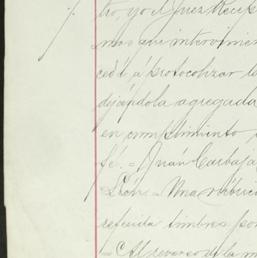 tro, yo el Juez Recep
mos que intervinier
cedí á protocolizar la
dijándola agregada
en cumplimiento
fé. = Juán Carbajá
León = Una rúbrica
referida timbres por
= Al reverso de la m